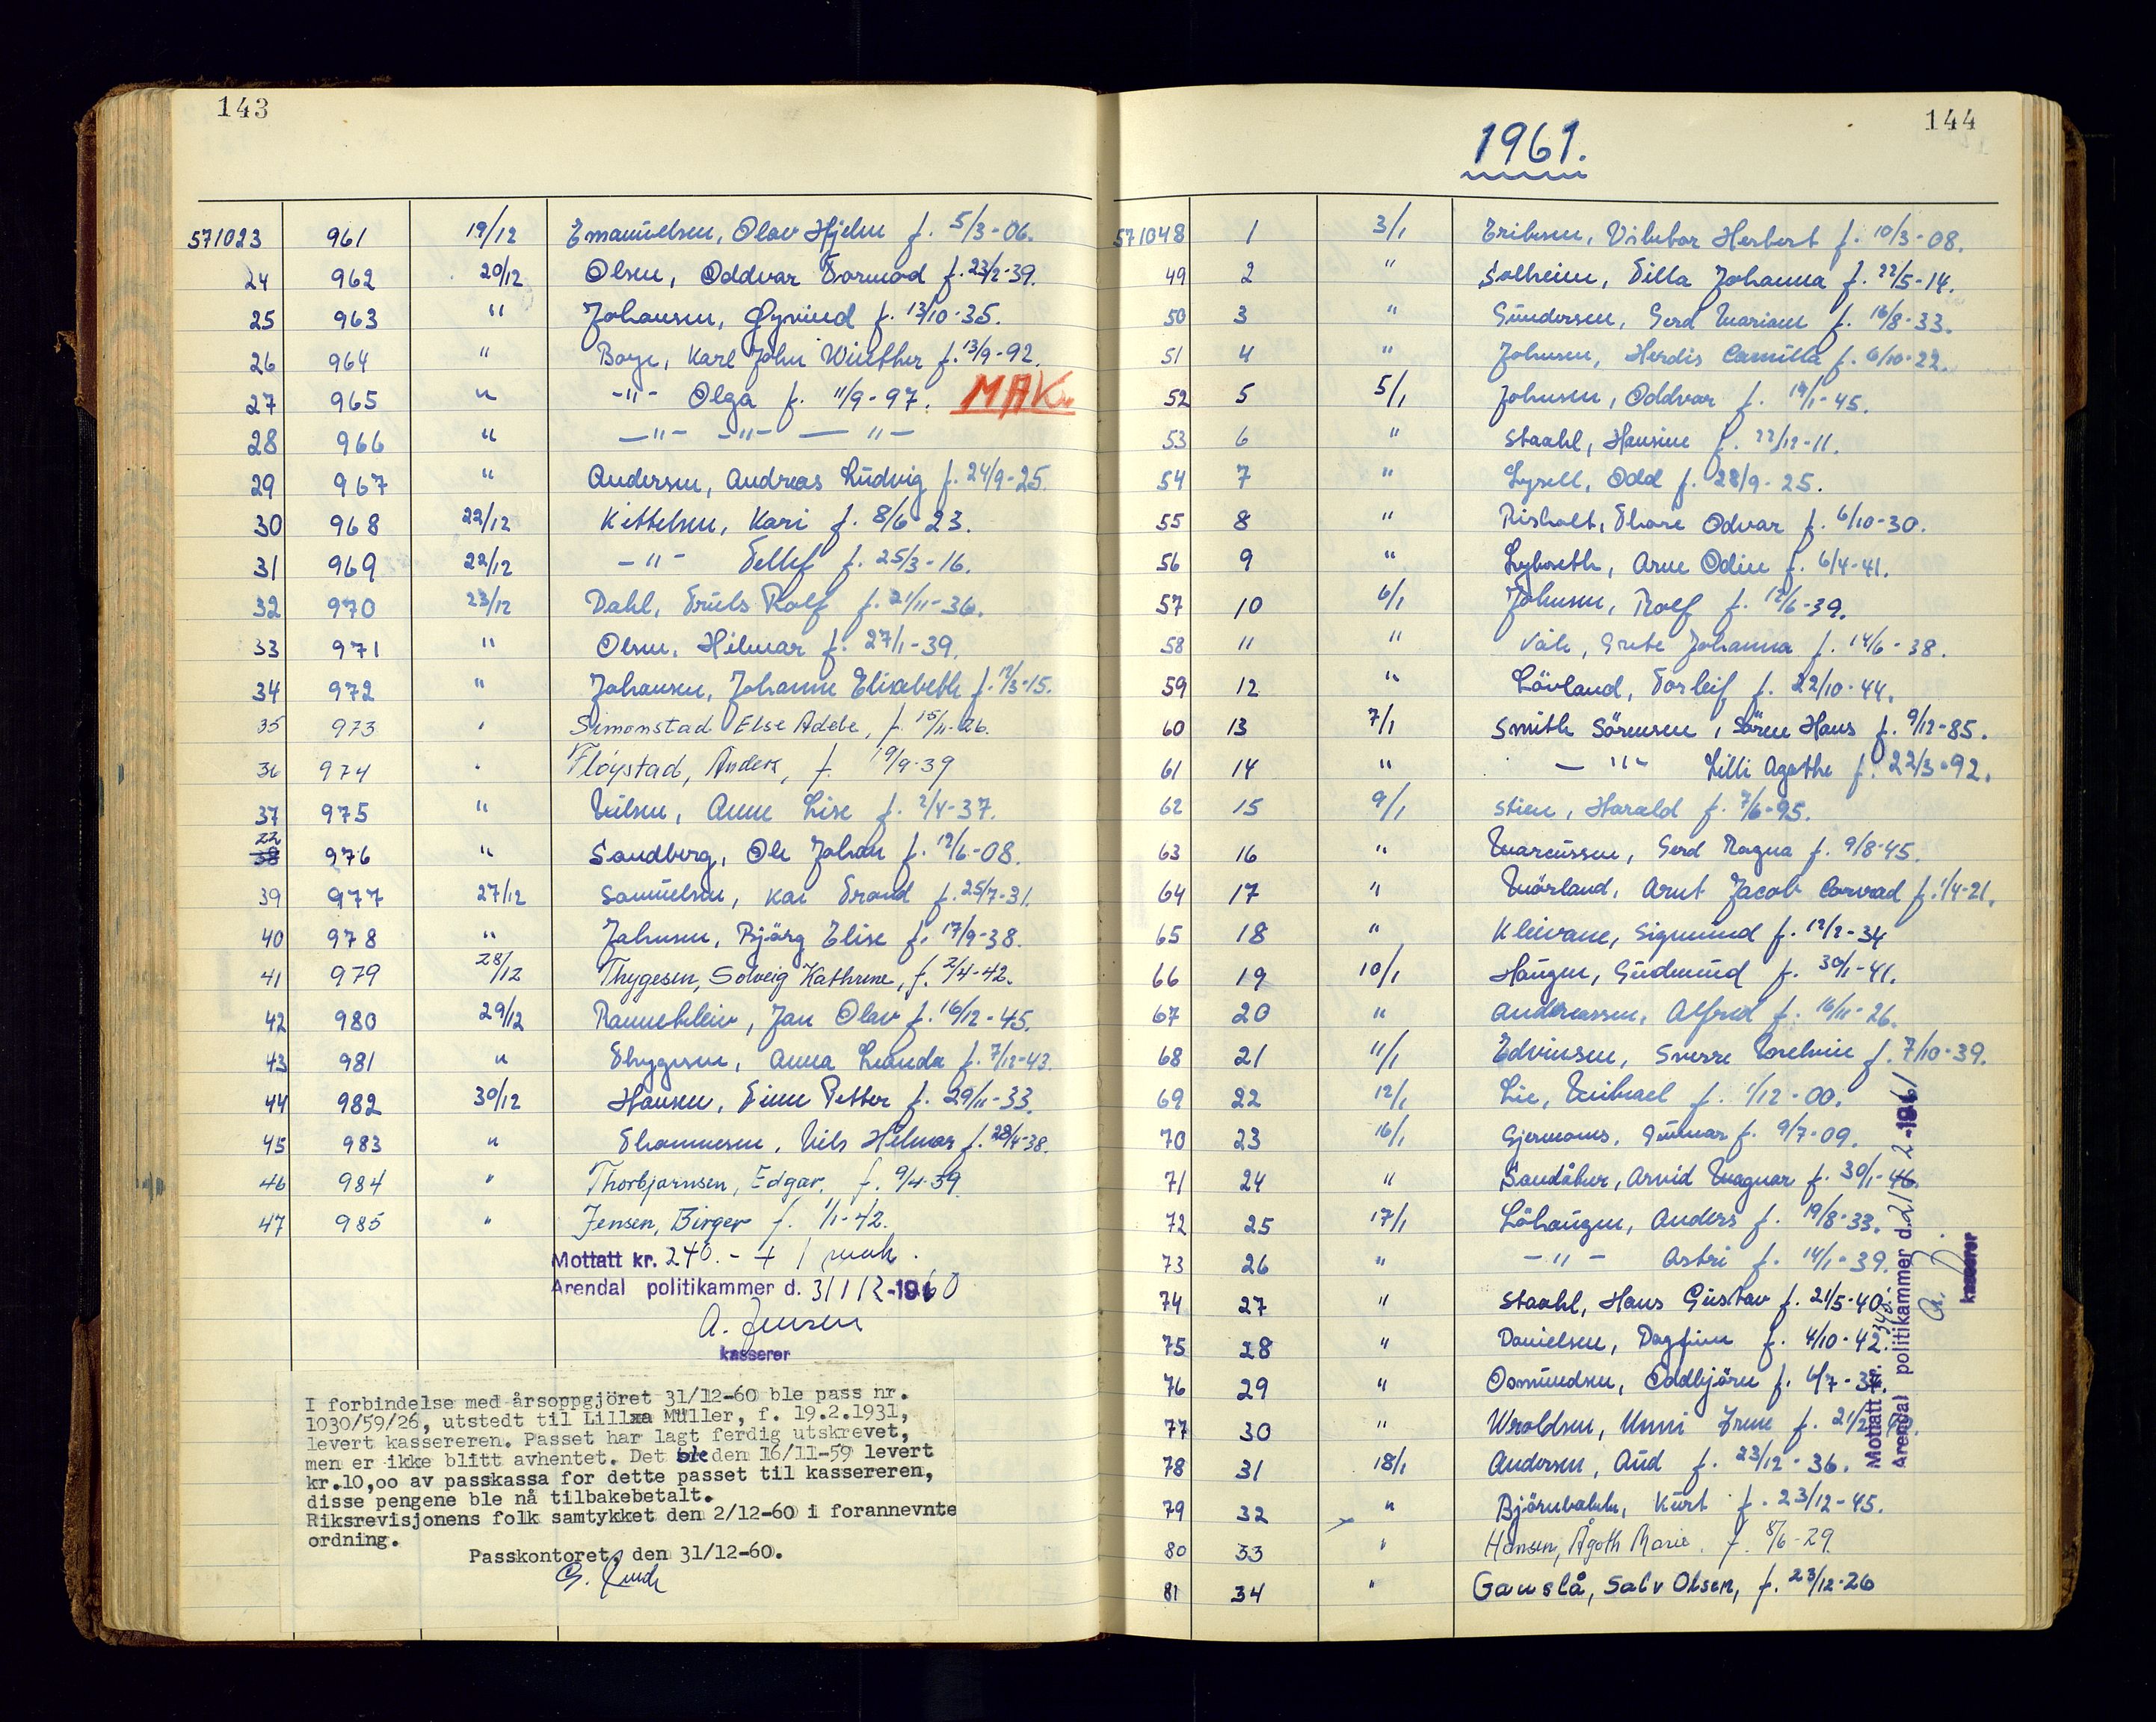 143
571023 961 19/12 Emanuelsen, Olav Hjelm f. 5/3-06.
24 962 20/12 Olsen, Oddvar Tormod f. 23/2-39.
25 963 " Johansen, Øyvind f. 13/10-35.
26 964 " Boye, Karl John Winther f. 13/9-92.
27 965 " -"- Olga f. 11/9-97. MAK.
28 966 " -"- -"- -"-
29 967 " Andersen, Andreas Ludvig f. 24/9-25.
30 968 22/12 Kittelsen, Kari f. 8/6-23.
31 969 22/12 -"- Tellef f. 25/3-16.
32 970 23/12 Dahl, Truls Rolf f. 21/11-36.
33 971 " Olsen, Hilmar f. 27/1-39.
34 972 " Johansen, Johanne Elisabeth f. 12/3-15.
35 973 " Simonstad Else Adele, f. 15/11-26.
36 974 " Fløystad, Anders, f. 19/9-39
37 975 " Nilsen, Anne Lise f. 2/4-37.
22
38 976 " Sandberg, Ole Johan f. 12/6-08.
39 977 27/12 Samuelsen, Kai Trond f. 25/7-31.
40 978 " Johnsen, Björg Elise f. 17/9-38.
41 979 28/12 Thygesen, Solveig Kathrine, f. 2/4-42.
42 980 29/12 Rannekleiv, Jan Olav f. 16/12-45.
43 981 " Thygesen, Anna Leanda f. 7/12-43.
44 982 30/12 Hansen, Finn Petter f. 29/11-33.
45 983 " Thommesen, Nils Hilmar f. 28/4-38.
46 984 " Thorbjørnsen, Edgar. f. 9/4-39.
47 985 " Jensen, Birger f. 1/1-42.
Mottatt kr. 240.- + 1 mak.
Arendal politikammer d. 31/12-1960
A. Jensen
kasserer
I forbindelse med årsoppgjöret 31/12-60 ble pass nr.
1030/59/26, utstedt til Lillxa Müller, f. 19.2.1931,
levert kassereren. Passet har lagt ferdig utskrevet,
men er ikke blitt avhentet. Det ble den 16/11-59 levert
kr.10,oo av passkassa for dette passet til kassereren,
disse pengene ble nå tilbakebetalt.
Riksrevisjonens folk samtykket den 2/12-60 i forannevnte
ordning.
Passkontoret, den 31/12-60.
144
1961.
571048 1 3/1 Eriksen, Vilebar Herbert f. 10/3-08.
49 2 " Solheim, Tilla Johanna f. 22/5-14.
50 3 " Gundersen, Gerd Mariann f. 16/8-33.
51 4 " Johnsen, Herdis Camilla f. 6/10-22.
52 5 5/1 Johnsen, Oddvar f. 19/1-45.
53 6 " Staahl, Hansine f. 22/12-11.
54 7 " Lysell, Odd f. 28/9-25.
55 8 " Risholt, Thore Odvar f. 6/10-30.
56 9 " Lyboeth, Arne Odin f. 6/4-41.
57 10 6/1 Johnsen, Rolf f. 12/6-39.
58 11 " Våle, Grete Johanna f. 14/6-38.
59 12 " Lövland, Torleif f. 22/10-44.
60 13 7/1 Smith Sörensen, Sören Hans f. 9/12-85.
61 14 " -"- Lilli Agathe f. 22/3-92.
62 15 9/1 Stien, Harald f. 7/6-95.
63 16 " Marcussen, Gerd Ragna f. 9/8-45.
64 17 " Mörland, Arnt Jacob Conrad f. 1/4-21.
65 18 " Kleivane, Sigmund f. 12/2-34
66 19 10/1 Haugen, Gudmund f. 30/1-41.
67 20 " Andreassen, Alfred f. 16/11-26.
68 21 11/1 Edvinsen, Sverre Melvin f. 7/10-39.
69 22 12/1 Lie, Mikael f. 1/12-00.
70 23 16/1 Gjermoms, Gunnar f. 9/7-09.
71 24 " Sandåker, Arvid Magnar f. 30/1-46.
72 25 17/1 Löhaugen, Anders f. 19/8-33.
73 26 " -"- Astri f. 14/1-39.
74 27 " Staahl, Hans Gustav f. 21/5-40.
75 28 " Danielsen, Dagfinn f. 4/10-42.
76 29 " Osmundsen, Oddbjörn f. 4/7-
77 30 " Wroldsen, Unni Irene f. 21/2
78 31 18/1 Andersen, Aud f. 23/12-36.
79 32 " Björnbakk, Kurt f. 23/12-45.
80 33 " Hansen, Ågoth Marie. f. 8/6-29.
81 34 " Gauslå, Salv Olsen, f. 23/12-26
Mottatt kr. 340.
Arendal politikammer d. 2/2-1961
kasserer